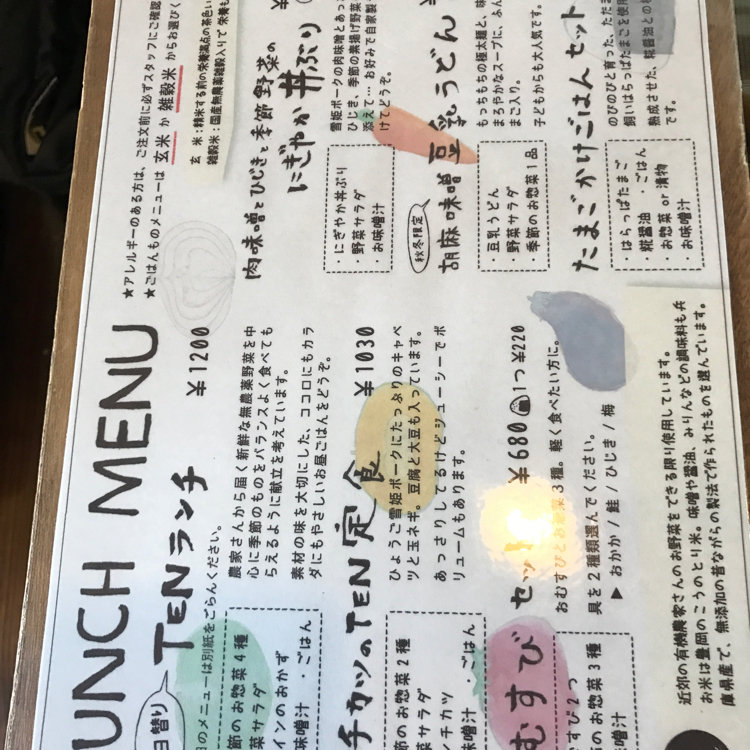 UNCH MENU
★アレルギーのある方は、ご注文前に必ずスタッフにご確認
★ごはんものメニューは 玄米 か 雑穀米 からお選びく
玄 米：精米する前の栄養満点の茶色い
雑穀米：国産無農薬雑穀入りで 栄養も
日替り
TENランチ ¥1200
のメニューは別紙をごらんください。
節のお惣菜4種
菜サラダ
インのおかず
味噌汁 ・ごはん
農家さんから届く新鮮な無農薬野菜を中
心に季節のものをバランスよく食べても
らえるように献立を考えています。
素材の味を大切にした、ココロにもカラ
ダにもやさしいお昼ごはんをどうぞ。
チカツのTEN定食 ¥1030
のお惣菜2種
菜サラダ
ンチカツ
味噌汁 ・ごはん
ひょうご雪姫ポークにたっぷりのキャベ
ツと玉ネギ。豆腐と大豆も入っています。
あっさりしてるけどジューシーでボ
リュームもあります。
むすび セット ¥680 1つ¥220
すび2つ
のお惣菜3種
味噌汁
おむすびとお惣菜3種。軽く食べたい方に。
具を2種類選んでください。
▶ おかか / 鮭 / ひじき / 梅
肉味噌とひじきと季節野菜の
にぎやか丼ぶり ¥
・にぎやか丼ぶり
野菜サラダ
・お味噌汁
雪姫ポークの肉味噌とあっ
ひじき、季節の素揚げ野菜
添えて… お好みで自家製
けてどうぞ。
秋冬限定
胡麻味噌豆乳うどん ¥
・豆乳うどん
野菜サラダ
・季節のお惣菜1品
もっちもちの極太麺と、味
まろやかなスープに、ふん
まご入り。
子どもからも大人気です。
たまごかけごはん セット
・はらっぱたまご
糀醤油 ・ごはん
・お惣菜 or 漬物
・お味噌汁
のびのびと育った、ただま
飼いはらっぱたまごを使用
熟成させた、糀醤油との相
です。
近郊の有機農家さんのお野菜をできる限り使用しています。
お米は豊岡のこうのとり米。味噌や醤油、みりんなどの調味料も兵
庫県産で、無添加の昔ながらの製法で作られたものを選んでいます。